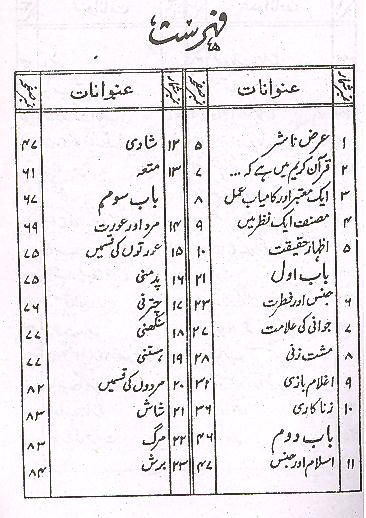 فہرست
نمبر شمار عنوانات نمبر صفحہ
۱ عرض ناشر ۵
۲ قرآن کریم میں ہے کہ ... ۷
۳ ایک معتبر اور کامیاب عمل ۸
۴ مصنف ایک نظر میں ۹
۵ اظہار حقیقت ۱۰
باب اول ۲۱
۶ جنس اور فطرت ۲۳
۷ جوانی کی علامت ۲۷
۸ مشت زنی ۲۸
۹ اغلام بازی ۳۲
۱۰ زناکاری ۳۶
باب دوم ۴۶
۱۱ اسلام اور جنس ۴۷
نمبر شمار عنوانات نمبر صفحہ
۱۲ شادی ۴۷
۱۳ متعہ ۶۱
باب سوم ۶۷
۱۴ مرد اور عورت ۶۹
۱۵ عورتوں کی قسمیں ۷۵
۱۶ پدمنی ۷۵
۱۷ چترنی ۷۶
۱۸ سنکھنی ۷۷
۱۹ ہستنی ۷۷
۲۰ مردوں کی قسمیں ۸۲
۲۱ شاش ۸۳
۲۲ مرگ ۸۳
۲۳ برش ۸۴